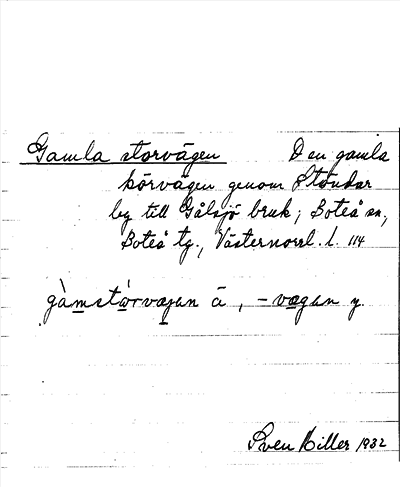 Gamla storvägen Den gamla
körvägen genom Ständar
by till Gålsjö bruk; Boteå sn,
Boteå tg., Västernorrl. l. 114
gàmstòrvæjan ä, -vægan y.
Sven Hiller 1932